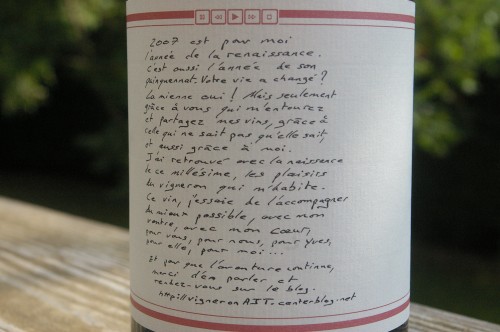 2007 est pour moi
l'année de la renaissance.
C'est aussi l'année de son
quinquennat. Votre vie a changé?
La mienne oui! Mais seulement
grâce à vous qui m'entourez
et partagez mes vins, grâce à
celle qui ne sait pas qu'elle sait,
et aussi grâce à moi.
J'ai retrouvé avec la naissance
de ce millésime, les plaisirs
du vigneron qui m'habite.
Ce vin, j'essaie de l'accompagner
du mieux possible, avec mon
ventre, avec mon cœur,
pour vous, pour nous, pour Yves,
pour elle, pour moi...
Et pour que l'aventure continue,
merci d'en parler et
rendez-vous sur le blog.
http://vigneronAIT.centerblog.net